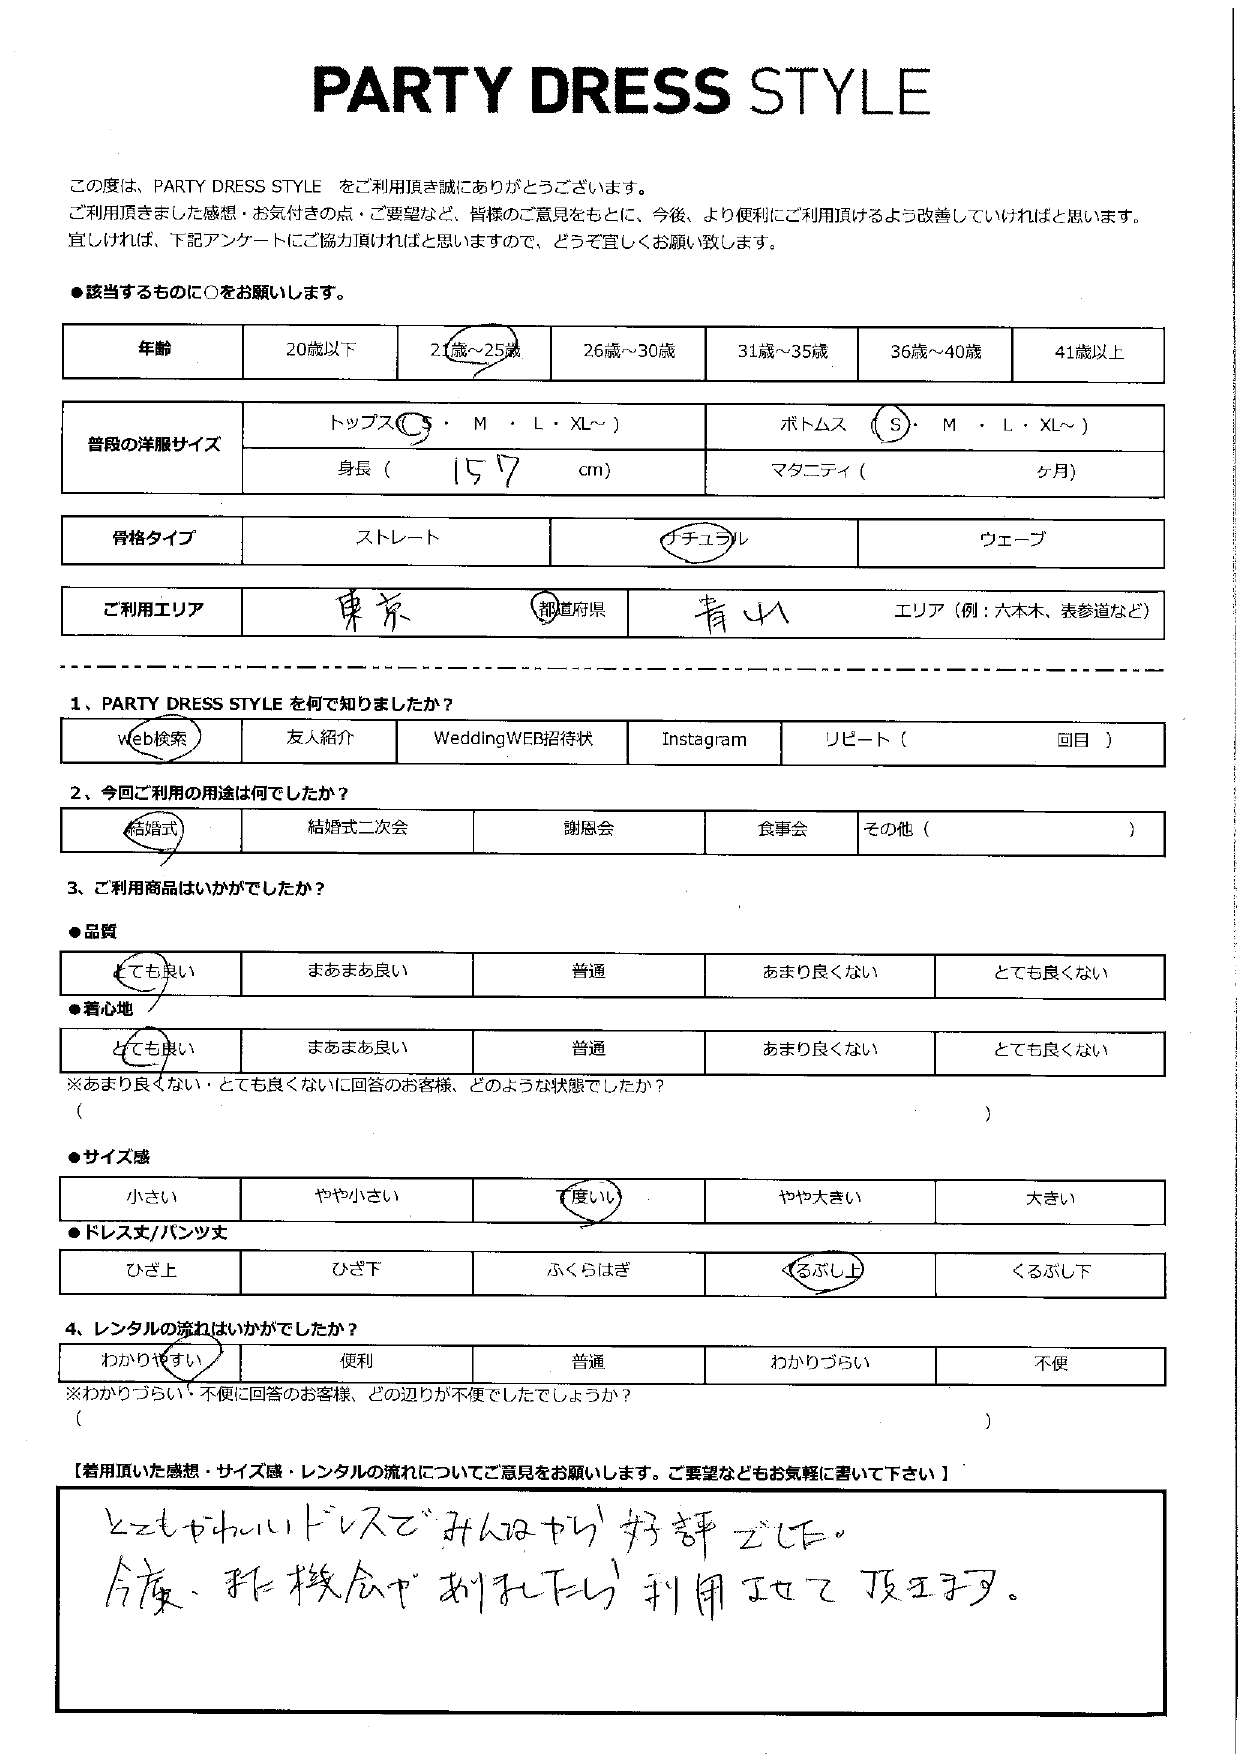 PARTY DRESS STYLE
この度は、PARTY DRESS STYLE をご利用頂き誠にありがとうございます。
ご利用頂きました感想・お気付きの点・ご要望など、皆様のご意見をもとに、今後、より便利にご利用頂けるよう改善していければと思います。
宜しければ、下記アンケートにご協力頂ければと思いますので、どうぞ宜しくお願い致します。
●該当するものに○をお願いします。
年齢 20歳以下 21歳～25歳 26歳～30歳 31歳～35歳 36歳～40歳 41歳以上
普段の洋服サイズ
トップス( S ・ M ・ L ・ XL～ ) ボトムス ( S ・ M ・ L ・ XL～ )
身長 ( 157 cm) マタニティ ( ヶ月)
骨格タイプ ストレート ナチュラル ウェーブ
ご利用エリア 東京 都道府県 青山 エリア（例：六本木、表参道など）
1、PARTY DRESS STYLE を何で知りましたか？
web検索 友人紹介 WeddingWEB招待状 Instagram リピート ( 回目 )
2、今回ご利用の用途は何でしたか？
結婚式 結婚式二次会 謝恩会 食事会 その他 ( )
3、ご利用商品はいかがでしたか？
●品質
とても良い まあまあ良い 普通 あまり良くない とても良くない
●着心地
とても良い まあまあ良い 普通 あまり良くない とても良くない
※あまり良くない・とても良くないに回答のお客様、どのような状態でしたか？
( )
●サイズ感
小さい やや小さい 丁度いい やや大きい 大きい
●ドレス丈/パンツ丈
ひざ上 ひざ下 ふくらはぎ くるぶし上 くるぶし下
4、レンタルの流れはいかがでしたか？
わかりやすい 便利 普通 わかりづらい 不便
※わかりづらい・不便に回答のお客様、どの辺りが不便でしたでしょうか？
( )
【着用頂いた感想・サイズ感・レンタルの流れについてご意見をお願いします。ご要望などもお気軽に書いて下さい 】
とてもかわいいドレスでみんなから好評でした。
今度、また機会がありましたら利用させて頂きます。